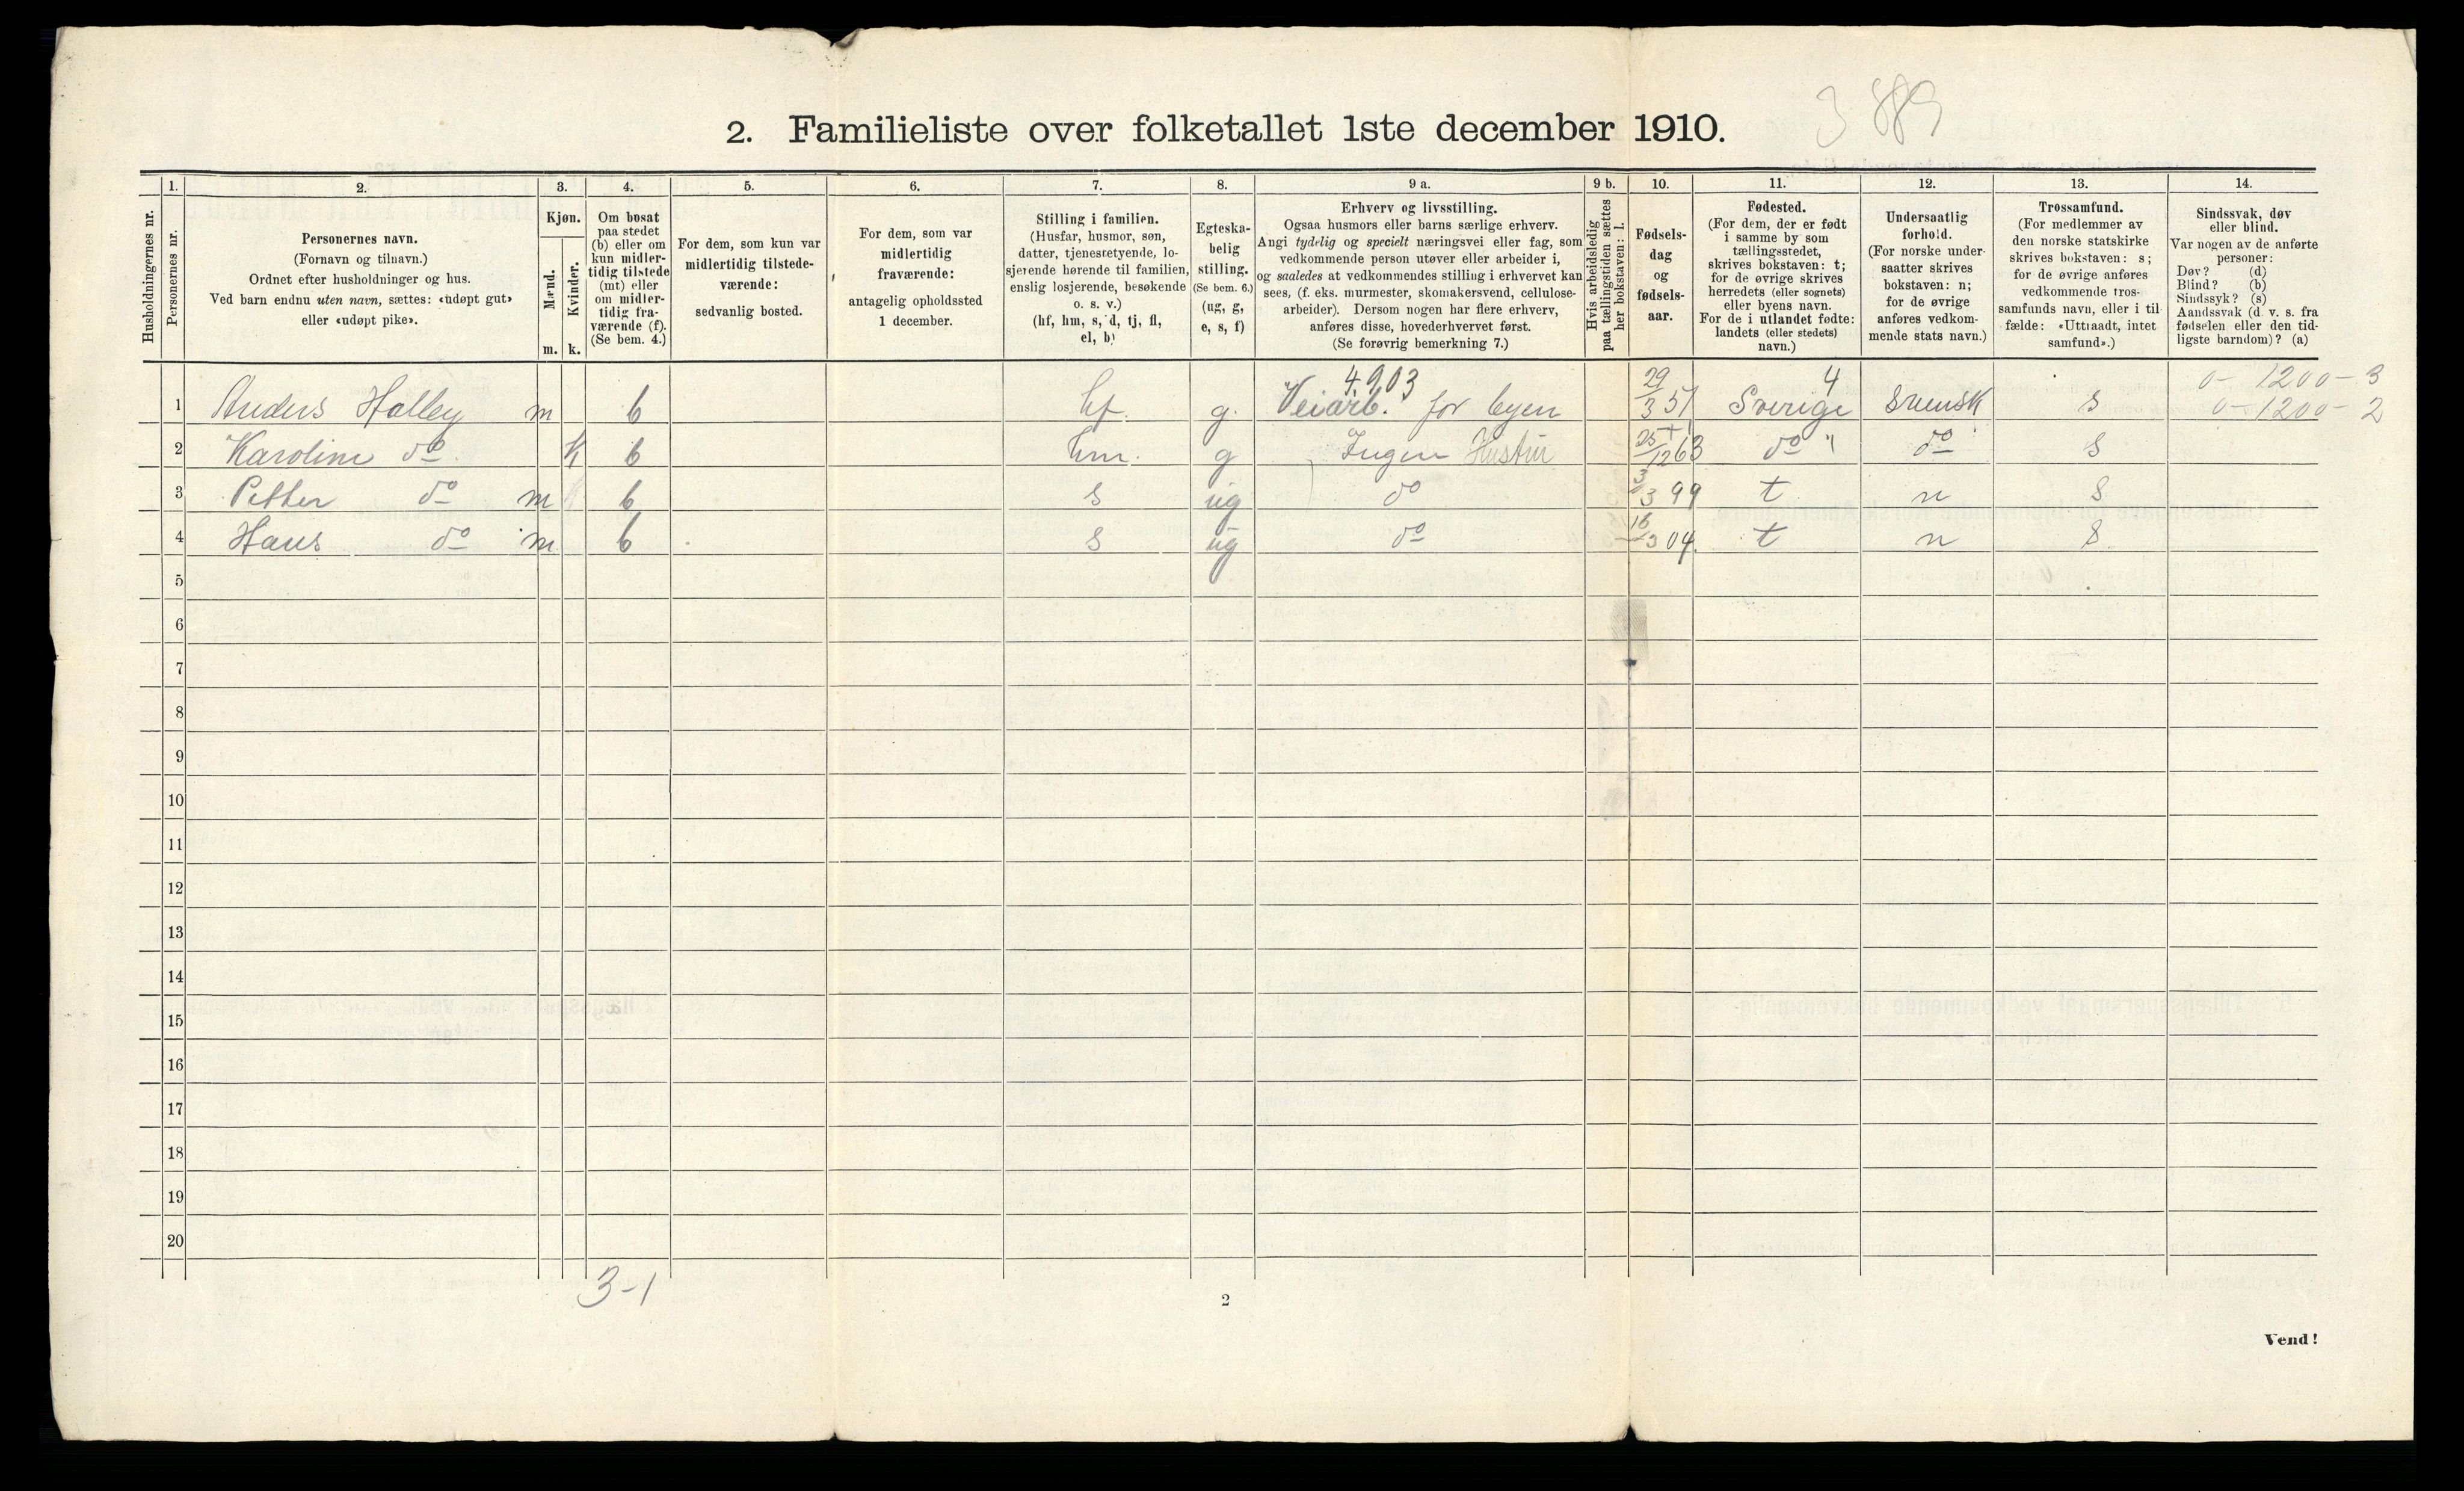 3 889
2. Familieliste over folketallet 1ste december 1910.
Husholdningernes nr.
1.
Personernes nr.
2.
Personernes navn.
(Fornavn og tilnavn.)
Ordnet efter husholdninger og hus.
Ved barn endnu uten navn, sættes: «udøpt gut»
eller «udøpt pike».
3.
Kjøn.
Mænd.
m.
Kvinder.
k.
4.
Om bosat
paa stedet
(b) eller om
kun midler-
tidig tilstede
(mt) eller
om midler-
tidig fra-
værende (f).
(Se bem. 4.)
5.
For dem, som kun var
midlertidig tilstede-
værende:
sedvanlig bosted.
6.
For dem, som var
midlertidig
fraværende:
antagelig opholdssted
1 december.
7.
Stilling i familien.
(Husfar, husmor, søn,
datter, tjenestetyende, lo-
sjerende hørende til familien,
enslig losjerende, besøkende
o. s. v.)
(hf, hm, s, d, tj, fl,
el, b)
8.
Egteska-
belig
stilling.
(Se bem. 6.)
(ug, g,
e, s, f)
9 a.
Erhverv og livsstilling.
Ogsaa husmors eller barns særlige erhverv.
Angi tydelig og specielt næringsvei eller fag, som
vedkommende person utøver eller arbeider i,
og saaledes at vedkommendes stilling i erhvervet kan
sees, (f. eks. murmester, skomakersvend, cellulose-
arbeider). Dersom nogen har flere erhverv,
anføres disse, hovederhvervet først.
(Se forøvrig bemerkning 7.)
9 b.
Hvis arbeidsledig
paa tællingstiden sættes
her bokstaven: l.
10.
Fødsels-
dag
og
fødsels-
aar.
11.
Fødested.
(For dem, der er født
i samme by som
tællingsstedet,
skrives bokstaven: t;
for de øvrige skrives
herredets (eller sognets)
eller byens navn.
For de i utlandet fødte:
landets (eller stedets)
navn.)
12.
Undersaatlig
forhold.
(For norske under-
saatter skrives
bokstaven: n;
for de øvrige
anføres vedkom-
mende stats navn.)
13.
Trossamfund.
(For medlemmer av
den norske statskirke
skrives bokstaven: s;
for de øvrige anføres
vedkommende tros-
samfunds navn, eller i til-
fælde: «Uttraadt, intet
samfund».)
14.
Sindssvak, døv
eller blind.
Var nogen av de anførte
personer:
Døv? (d)
Blind? (b)
Sindssyk? (s)
Aandssvak (d. v. s. fra
fødselen eller den tid-
ligste barndom)? (a)
4.9.03 4 0- 1200- 3
1 Anders Halley m b hf. g. Veiarb. for byen 29/3 51 Sverige Svensk s 0- 1200- 2
2 Karoline do. K b hm. g Ingen Hustru 25/12 63 do " do s
3 Petter do m b s ug do 3/3 99 t n s
4 Hans do m b s ug do 16/3 04. t n s.
5
6
7
8
9
10
11
12
13
14
15
16
17
18
19
20
3-1
2
Vend!